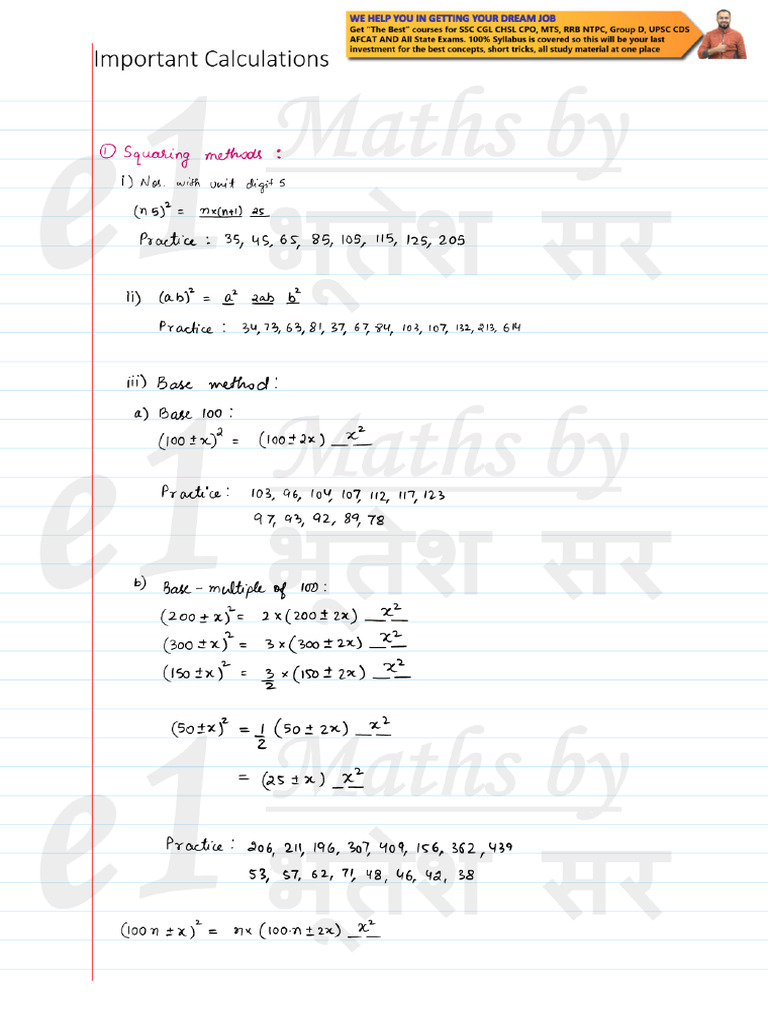 WE HELP YOU IN GETTING YOUR DREAM JOB
Get "The Best" courses for SSC CGL CHSL CPO, MTS, RRB NTPC, Group D, UPSC CDS
AFCAT AND All State Exams. 100% Syllabus is covered so this will be your last
investment for the best concepts, short tricks, all study material at one place
Important Calculations
e1 Maths by
भूतेश सर
① Squaring methods :
i) Nos. with unit digit 5
(n 5)² = n×(n+1) 25
Practice : 35, 45, 65, 85, 105, 115, 125, 205
ii) (ab)² = a² 2ab b²
Practice : 34, 73, 63, 81, 37, 67, 84, 103, 107, 132, 213, 614
iii) Base method :
a) Base 100 :
(100 ± x)² = (100 ± 2x) x²
Practice : 103, 96, 104, 107, 112, 117, 123
97, 93, 92, 89, 78
e1 Maths by
भूतेश सर
b) Base - multiple of 100 :
(200 ± x)² = 2 × (200 ± 2x) x²
(300 ± x)² = 3 × (300 ± 2x) x²
(150 ± x)² = 3/2 × (150 ± 2x) x²
(50 ± x)² = 1/2 (50 ± 2x) x²
= (25 ± x) x²
Practice : 206, 211, 196, 307, 409, 156, 362, 439
53, 57, 62, 71, 48, 46, 42, 38
e1 Maths by
भूतेश सर
(100 n ± x)² = n× (100·n ± 2x) x²